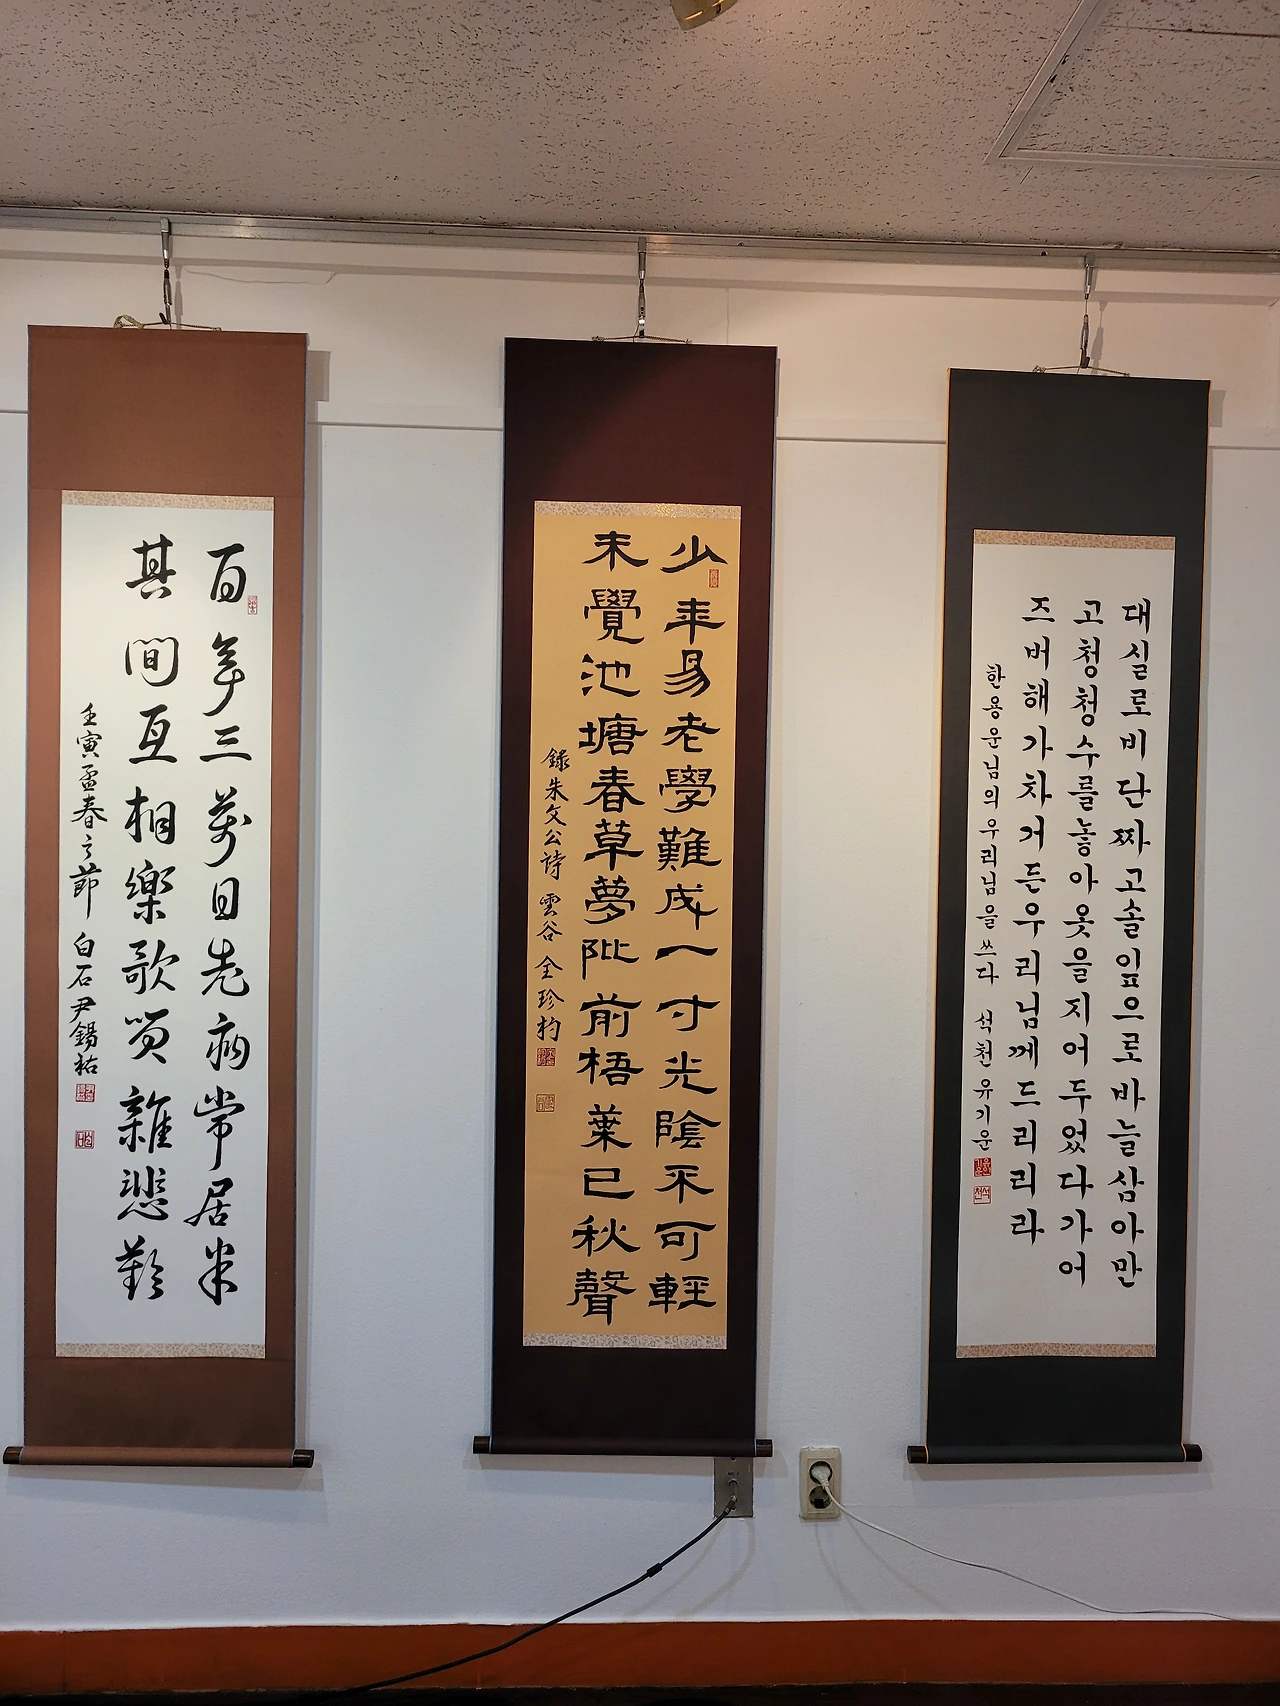 百年三萬日老病常居半
其間互相樂歌哭雜悲歎
壬寅孟春之節 白石 尹錫祐
少年易老學難成一寸光陰不可輕
未覺池塘春草夢階前梧葉已秋聲
錄朱文公詩 雲谷 全珍杓
대실로비단짜고솔잎으로바늘삼아만
고청청수를놓아옷을지어두었다가어
즈버해가차거든우리님께드리리라
한용운님의우리님을쓰다 석천 유기운